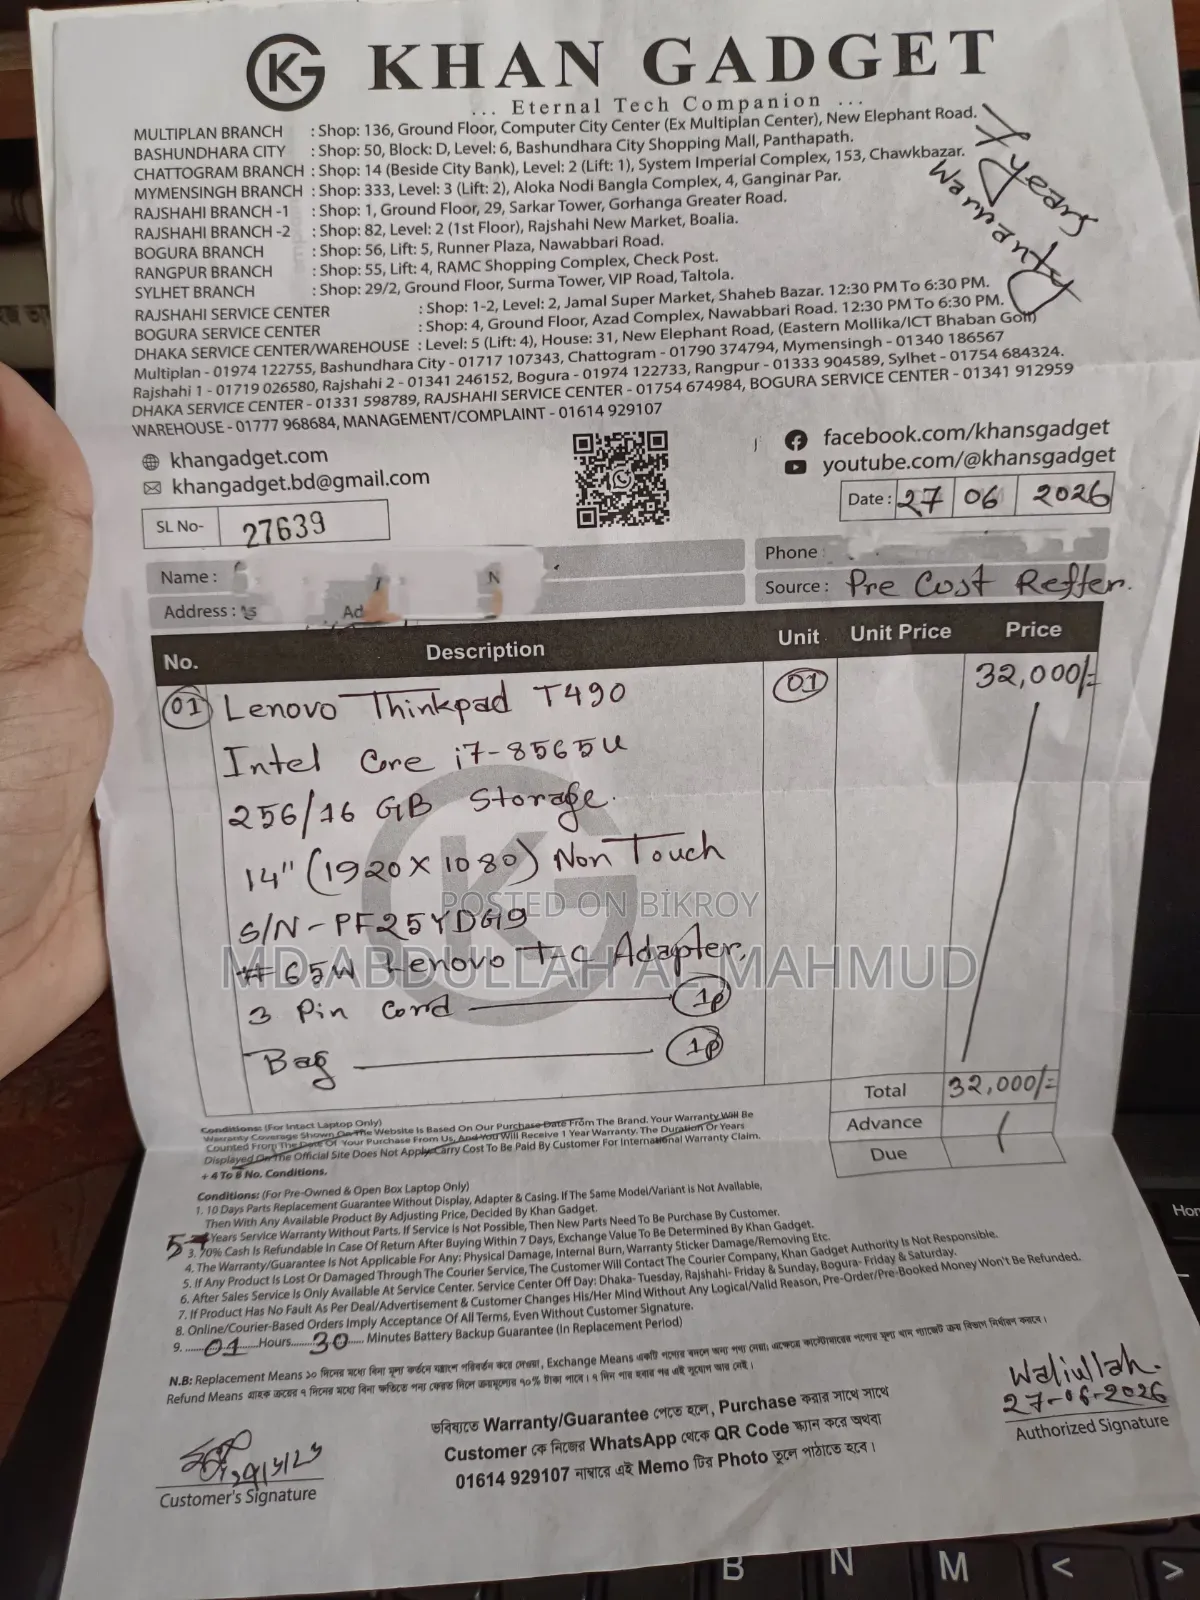 KG KHAN GADGET
... Eternal Tech Companion ...
MULTIPLAN BRANCH : Shop: 136, Ground Floor, Computer City Center (Ex Multiplan Center), New Elephant Road.
BASHUNDHARA CITY : Shop: 50, Block: D, Level: 6, Bashundhara City Shopping Mall, Panthapath.
CHATTOGRAM BRANCH : Shop: 14 (Beside City Bank), Level: 2 (Lift: 1), System Imperial Complex, 153, Chawkbazar.
MYMENSINGH BRANCH : Shop: 333, Level: 3 (Lift: 2), Aloka Nodi Bangla Complex, 4, Ganginar Par.
RAJSHAHI BRANCH -1 : Shop: 1, Ground Floor, 29, Sarkar Tower, Gorhanga Greater Road.
RAJSHAHI BRANCH -2 : Shop: 82, Level: 2 (1st Floor), Rajshahi New Market, Boalia.
BOGURA BRANCH : Shop: 56, Lift: 5, Runner Plaza, Nawabbari Road.
RANGPUR BRANCH : Shop: 55, Lift: 4, RAMC Shopping Complex, Check Post.
SYLHET BRANCH : Shop: 29/2, Ground Floor, Surma Tower, VIP Road, Taltola.
RAJSHAHI SERVICE CENTER : Shop: 1-2, Level: 2, Jamal Super Market, Shaheb Bazar. 12:30 PM To 6:30 PM.
BOGURA SERVICE CENTER : Shop: 4, Ground Floor, Azad Complex, Nawabbari Road. 12:30 PM To 6:30 PM.
DHAKA SERVICE CENTER/WAREHOUSE : Level: 5 (Lift: 4), House: 31, New Elephant Road, (Eastern Mollika/ICT Bhaban Goli)
Multiplan - 01974 122755, Bashundhara City - 01717 107343, Chattogram - 01790 374794, Mymensingh - 01340 186567
Rajshahi 1 - 01719 026580, Rajshahi 2 - 01341 246152, Bogura - 01974 122733, Rangpur - 01333 904589, Sylhet - 01754 684324.
DHAKA SERVICE CENTER - 01331 598789, RAJSHAHI SERVICE CENTER - 01754 674984, BOGURA SERVICE CENTER - 01341 912959
WAREHOUSE - 01777 968684, MANAGEMENT/COMPLAINT - 01614 929107
years
Warranty
khangadget.com
khangadget.bd@gmail.com
facebook.com/khansgadget
youtube.com/@khansgadget
SL No- 27639
Date : 27 06 2026
Name :
Phone :
Address :
Source : Pre Cost Reffer.
No. Description Unit Unit Price Price
01 Lenovo Thinkpad T490 01 32,000/=
Intel Core i7-8565U
256/16 GB Storage.
14" (1920 X 1080) Non Touch
S/N - PF25YDG9
# 65W Lenovo T-C Adapter.
3 Pin Cord 1p
Bag 1p
POSTED ON BİKROY
MD.ABDULLAH AL MAHMUD
Total 32,000/=
Advance
Due
Conditions: (For Intact Laptop Only)
Warranty Coverage Shown On The Website Is Based On Our Purchase Date From The Brand. Your Warranty Will Be
Counted From The Date Of Your Purchase From Us, And You Will Receive 1 Year Warranty. The Duration Or Years
Displayed On The Official Site Does Not Apply. Carry Cost To Be Paid By Customer For International Warranty Claim.
+ 4 To 8 No. Conditions.
Conditions: (For Pre-Owned & Open Box Laptop Only)
1. 10 Days Parts Replacement Guarantee Without Display, Adapter & Casing. If The Same Model/Variant Is Not Available,
Then With Any Available Product By Adjusting Price, Decided By Khan Gadget.
Years Service Warranty Without Parts. If Service Is Not Possible, Then New Parts Need To Be Purchase By Customer.
3. 70% Cash Is Refundable In Case Of Return After Buying Within 7 Days, Exchange Value To Be Determined By Khan Gadget.
4. The Warranty/Guarantee Is Not Applicable For Any: Physical Damage, Internal Burn, Warranty Sticker Damage/Removing Etc.
5. If Any Product Is Lost Or Damaged Through The Courier Service, The Customer Will Contact The Courier Company, Khan Gadget Authority Is Not Responsible.
6. After Sales Service Is Only Available At Service Center. Service Center Off Day: Dhaka- Tuesday, Rajshahi- Friday & Sunday, Bogura- Friday & Saturday.
7. If Product Has No Fault As Per Deal/Advertisement & Customer Changes His/Her Mind Without Any Logical/Valid Reason, Pre-Order/Pre-Booked Money Won't Be Refunded.
8. Online/Courier-Based Orders Imply Acceptance Of All Terms, Even Without Customer Signature.
9. ......01......Hours......30......Minutes Battery Backup Guarantee (In Replacement Period)
N.B: Replacement Means ১০ দিনের মধ্যে বিনা মূল্য কর্তনে যন্ত্রাংশ পরিবর্তন করে দেওয়া, Exchange Means একটি পণ্যের বদলে অন্য পণ্য নেয়া। এক্ষেত্রে কাস্টোমারের পণ্যের মূল্য খান গ্যাজেট ক্রয় বিভাগ নির্ধারণ করবে।
Refund Means গ্রাহক ক্রয়ের ৭ দিনের মধ্যে বিনা ক্ষতিতে পণ্য ফেরত দিলে ক্রয়মূল্যের ৭০% টাকা পাবে। ৭ দিন পার হবার পর এই সুযোগ আর নেই।
ভবিষ্যতে Warranty/Guarantee পেতে হলে, Purchase করার সাথে সাথে
Customer কে নিজের WhatsApp থেকে QR Code স্ক্যান করে অথবা
01614 929107 নাম্বারে এই Memo টির Photo তুলে পাঠাতে হবে।
Customer's Signature
Waliullah.
27-06-2026
Authorized Signature
B N M < >